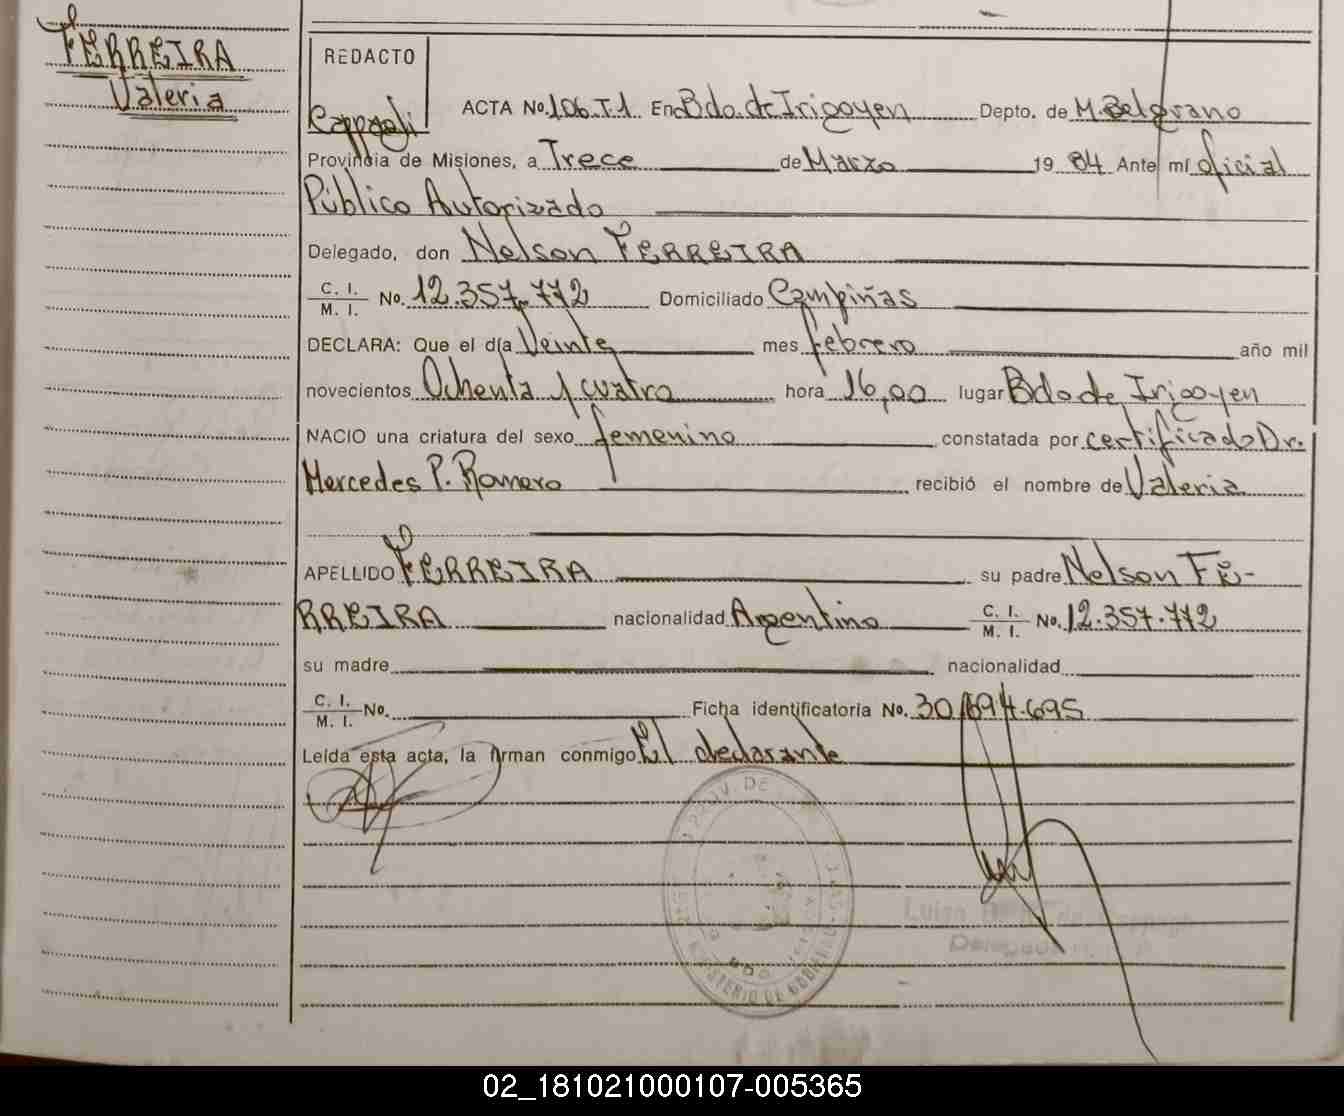 FERREIRA
Valeria
REDACTO
ACTA No. 106.T.1. En Bdo. de Irigoyen Depto. de M. Belgrano
Provincia de Misiones, a Trece de Marzo 19 84 Ante mí oficial
Público Autorizado
Delegado, don Nelson FERREIRA
C. I.
M. I. No. 12.357.772 Domiciliado Campiñas
DECLARA: Que el día Veinte mes febrero año mil
novecientos Ochenta y cuatro hora 16,00 lugar Bdo de Irigoyen
NACIO una criatura del sexo femenino constatada por certificado Dr.
Mercedes P. Romero recibió el nombre de Valeria
APELLIDO FERREIRA su padre Nelson FE-
RREIRA nacionalidad Argentino C. I.
M. I. No. 12.357.772
su madre nacionalidad
C. I.
M. I. No. Ficha identificatoria No. 30.694.695
Leída esta acta, la firman conmigo El declarante
PROV. DE
MINISTERIO DE GOBIERNO
BDO
Luisa de
02_181021000107-005365